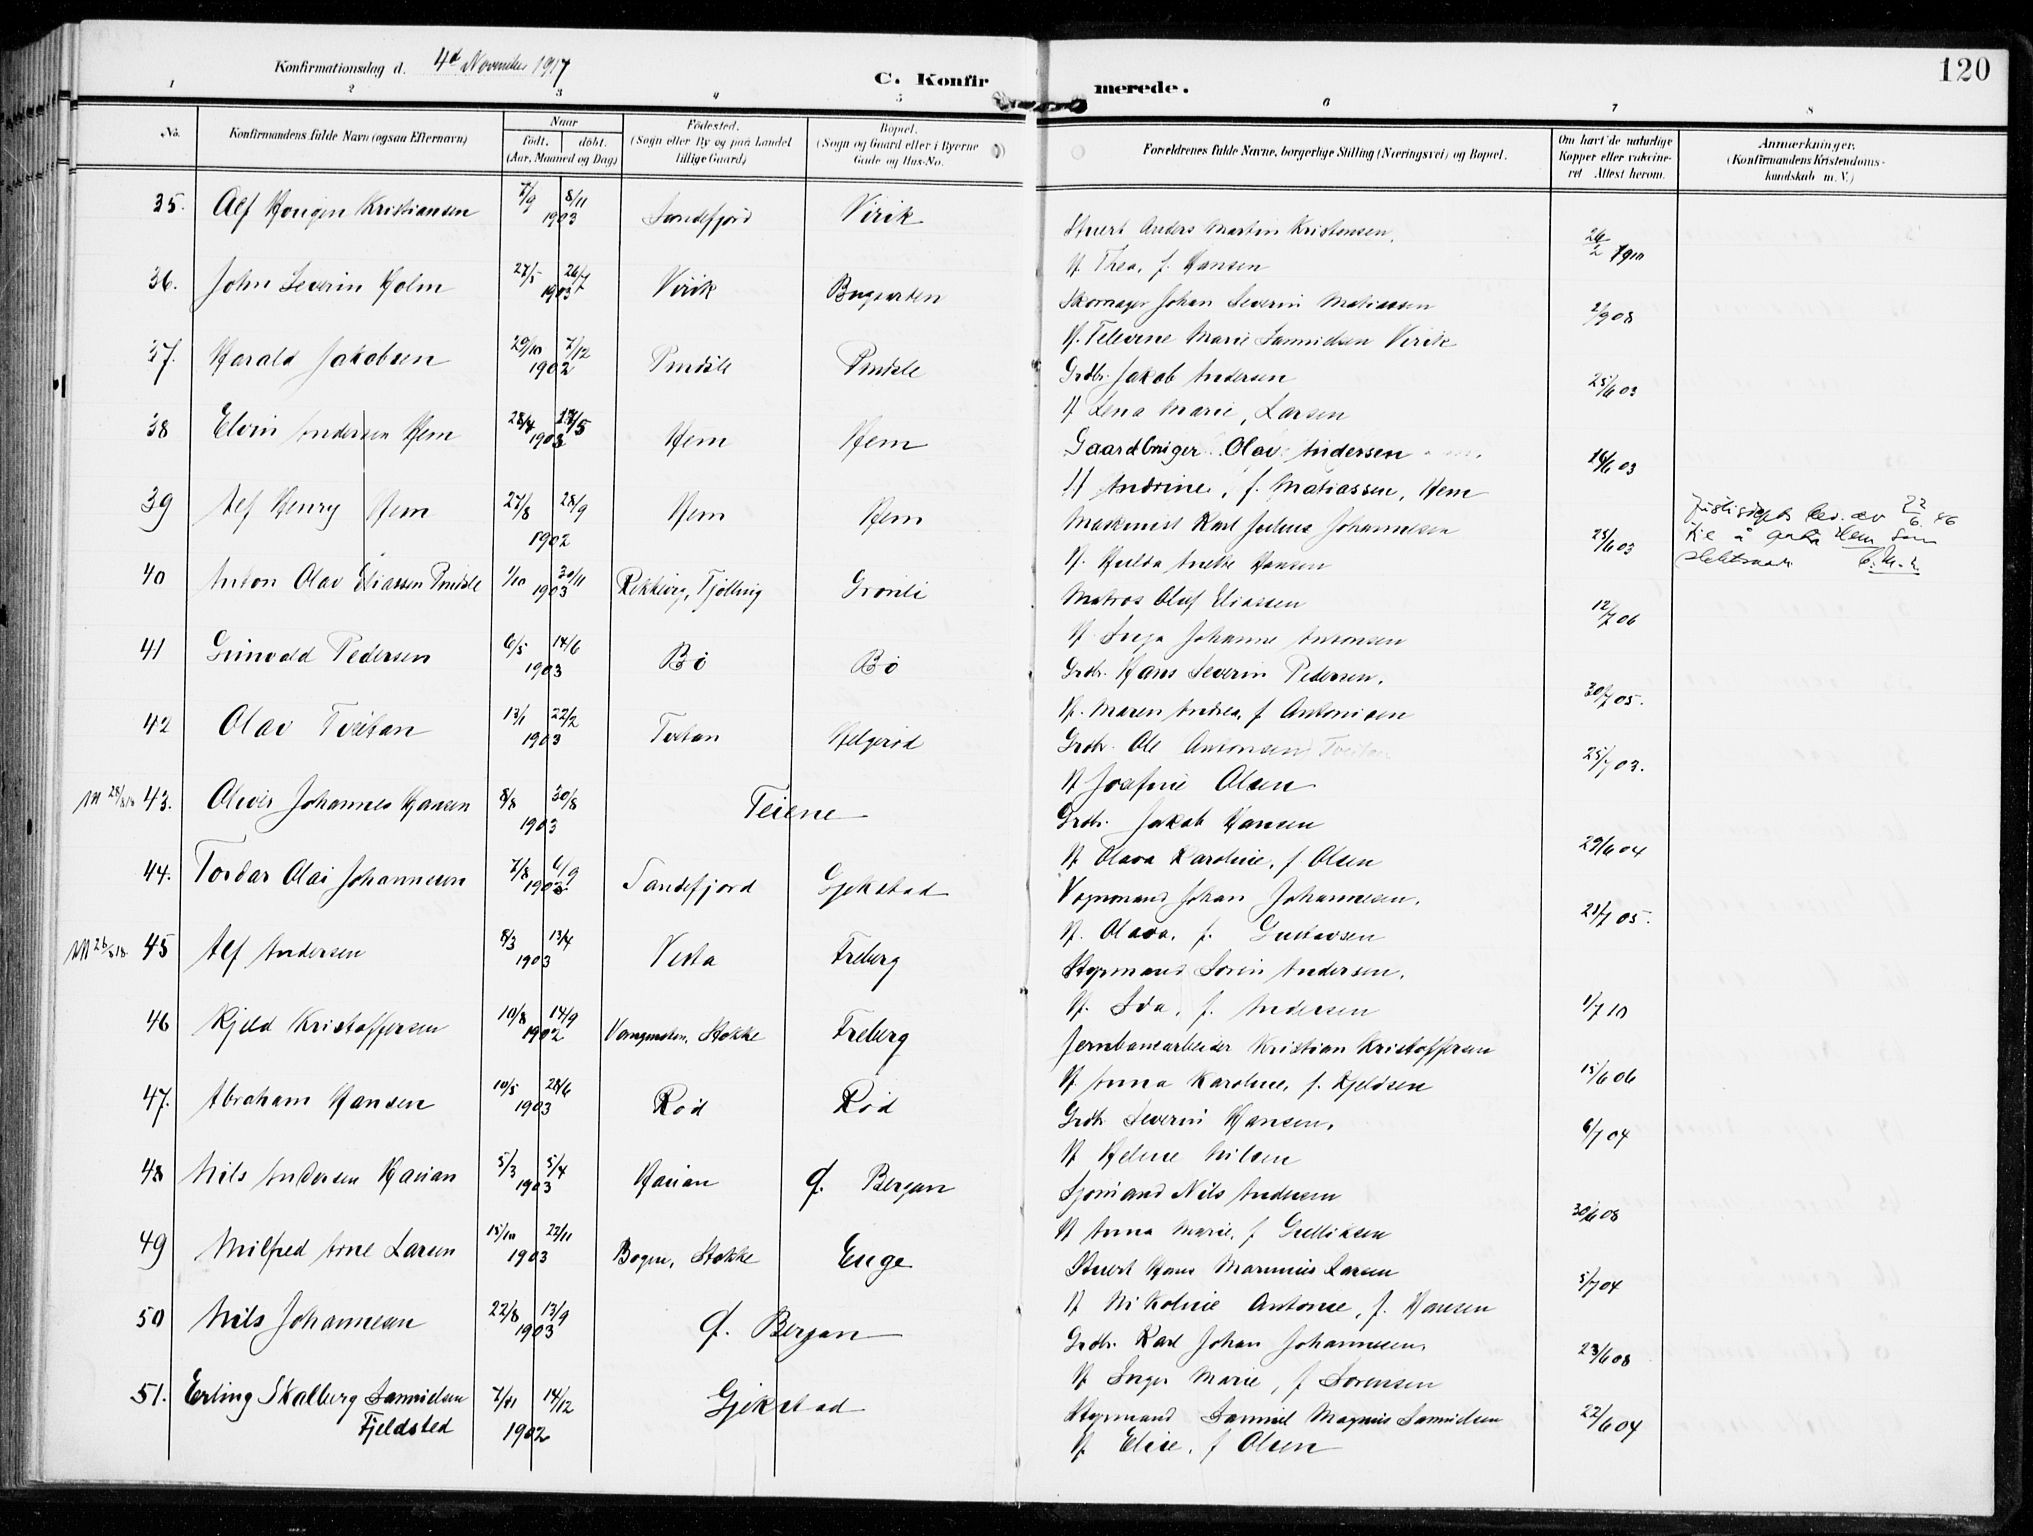 Konfirmationsdag d. 4d November 1917
C. Konfirmerede.
120
1 2 3 4 5 6 7 8
No.
Konfirmandens fulde Navn (ogsaa Efternavn)
Naar
födt. döbt.
(Aar, Maaned og Dag)
Födested.
(Sogn eller By og paa Landet
tillige Gaard)
Bopæl.
(Sogn og Gaard eller i Byerne
Gade og Hus-No.
Forældrenes fulde Navne, borgerlige Stilling (Næringsvei) og Bopæl.
Om havt de naturlige
Kopper eller vakcine-
ret Attest herom.
Anmærkninger.
(Konfirmandens Kristendoms-
kundskab m. V.)
35. Alf Hougen Kristiansen 7/9 8/11 1903 Sandefjord Virik
Stuert Anders Martin Kristensen,
H. Thea, f. Hansen 26/2 1910
36. John Severin Holm 27/5 26/7 1903 Virik Bugaarden
Skomager Johan Severin Matiassen
H. Televine Marie Samuelsen Virik 2/9 08
37. Harald Jakobsen 29/10 7/12 1902 Prudsle Prudsle
Grdbr. Jakob Andersen
H Lena Marie, Larsen 25/6 03
38 Elvin Andersen Hem 28/4 17/5 1903 Hem Hem
Gaardbruger Olav Andersen
H Andrine, f. Matiassen, Hem 16/6 03
39 Alf Henry Hem 27/8 28/9 1902 Hem Hem
Maskinist Karl Julius Johannesen
H. Hulda Hansen 25/6 03
av 22/6.46
å Hem som
40 Anton Olav Eliassen Prudsle 1/10 30/11 1903 Rekkevig, Tjölling Grønli
Matros Oluf Eliassen
H. Inga Johanne Antonsen 12/7 06
41 Grinvald Pedersen 6/5 14/6 1903 Bø Bø
Grdbr. Hans Severin Pedersen,
H. Maren Andrea, f Antonisen 30/7 05.
42 Olav Tveitan 13/1 22/2 1903 Tveitan Helgerød
Grdbr. Ole Antonsen Tveitan
H Josefine Olsen 25/7 03.
43. Oliver Johannes Hansen 8/8 30/8 1903 Teiene
Grdbr. Jakob Hansen
H Olava Karoline, f. Olsen 29/6 04
44. Tordar Olai Johannesen 7/8 6/9 1903 Sandefjord Gjekstad
Vognmand Johan Johannesen,
H. Olava, f. Gustavsen 23/7 05.
45 Alf Andersen 8/3 13/4 1903 Vesta Freberg
Styrmand Sörin Andersen,
H. Ida, f. Andersen 1/7 10
46 Kjeld Kristoffersen 10/8 14/9 1902 Stokke Freberg
Jernbanearbeider Kristian Kristoffersen
H Anna Karoline, f. Kjeldsen 15/6 06
47. Abraham Hansen 10/5 28/6 1903 Rød Rød
Grdbr Severin Hansen,
H Helene Nilsen 6/7 04
48 Nils Andersen Hauan 5/3 5/4 1903 Hauan Bergan
Sjömand Nils Andersen
H Anna Marie, f Gulliksen 30/6 08
49 Milfred Arne Larsen 15/10 22/11 1903 Bogen, Stokke Enge
Stuert Hans Marinius Larsen
H Nikoline Antonie, f. Hansen 5/7 04
50 Nils Johannesen 22/8 13/9 1903 Bergan
Grdbr. Karl Johan Johannesen,
H Inger Marie, f Sørensen 23/6 08
51. Erling Skalberg Samuelsen
Fjeldsted 7/11 14/12 1902 Gjekstad
Styrmand Samuel Magnus Samuelsen
H. Elise, f Olsen 22/6 04